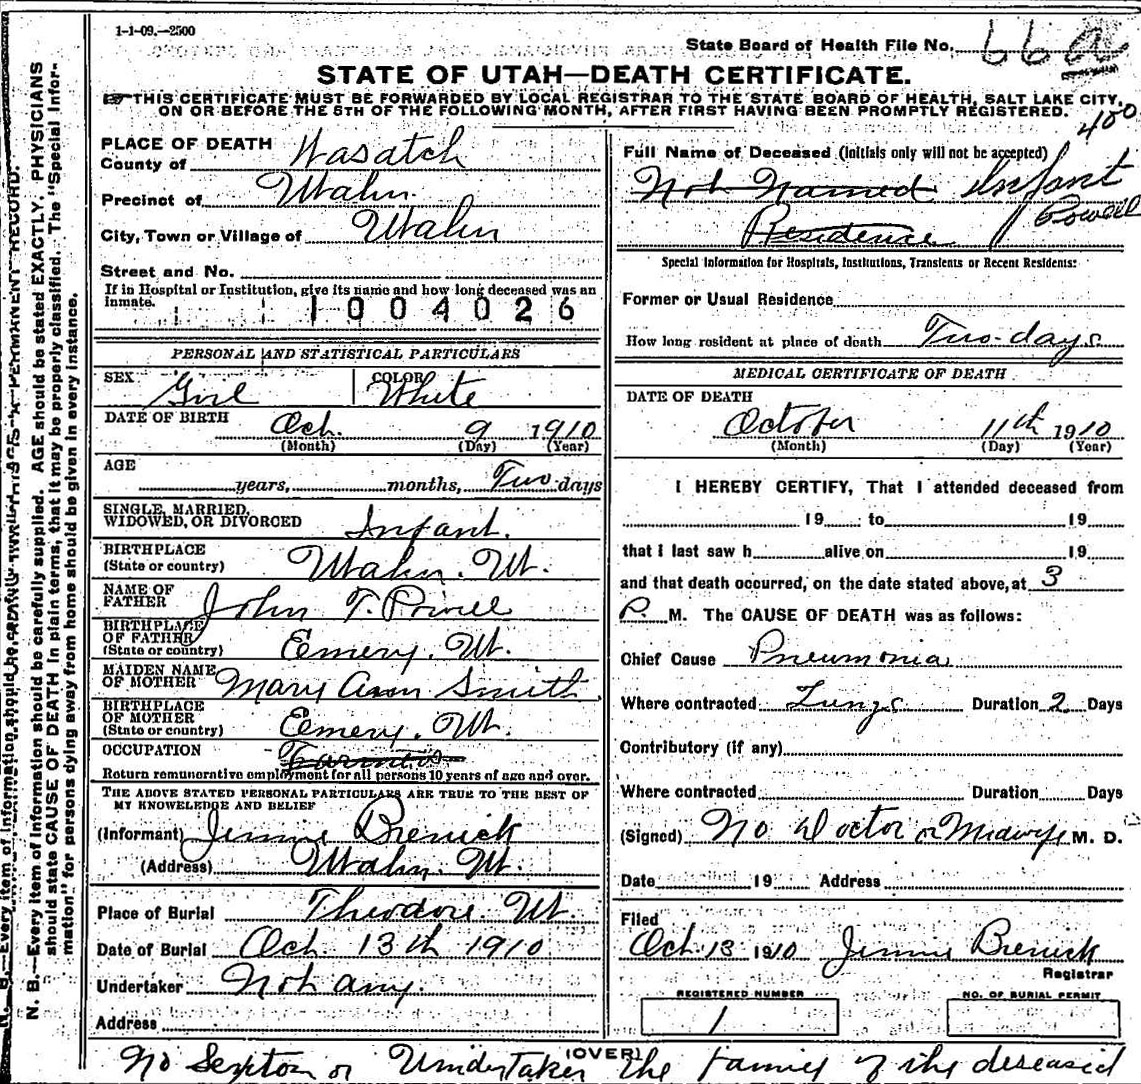 1-1-09.—2500
State Board of Health File No. 66a
STATE OF UTAH—DEATH CERTIFICATE.
THIS CERTIFICATE MUST BE FORWARDED BY LOCAL REGISTRAR TO THE STATE BOARD OF HEALTH, SALT LAKE CITY,
ON OR BEFORE THE 5TH OF THE FOLLOWING MONTH, AFTER FIRST HAVING BEEN PROMPTLY REGISTERED.
400
PLACE OF DEATH
County of Wasatch
Precinct of Utahn
City, Town or Village of Utahn
Street and No.
If in Hospital or Institution, give its name and how long deceased was an
inmate.
1004026
PERSONAL AND STATISTICAL PARTICULARS
SEX Girl COLOR White
DATE OF BIRTH Oct. 9 1910
(Month) (Day) (Year)
AGE
years, months, Two days
SINGLE, MARRIED,
WIDOWED, OR DIVORCED Infant.
BIRTHPLACE
(State or country) Utahn. Ut.
NAME OF
FATHER John T. Powell
BIRTHPLACE
OF FATHER
(State or country) Emery. Ut.
MAIDEN NAME
OF MOTHER Mary Ann Smith
BIRTHPLACE
OF MOTHER
(State or country) Emery. Ut.
OCCUPATION
Return remunerative employment for all persons 10 years of age and over.
THE ABOVE STATED PERSONAL PARTICULARS ARE TRUE TO THE BEST OF
MY KNOWELEDGE AND BELIEF
(Informant) Jennie
(Address) Utahn. Ut.
Place of Burial Theodore. Ut.
Date of Burial Oct. 13th 1910
Undertaker Not any.
Address
Full Name of Deceased (Initials only will not be accepted)
Not Named Infant
Powell
Residence
Special Information for Hospitals, Institutions, Transients or Recent Residents:
Former or Usual Residence
How long resident at place of death Two-days
MEDICAL CERTIFICATE OF DEATH
DATE OF DEATH
October 11th 1910
(Month) (Day) (Year)
I HEREBY CERTIFY, That I attended deceased from
19 to 19
that I last saw h alive on 19
and that death occurred, on the date stated above, at 3
P. M. The CAUSE OF DEATH was as follows:
Chief Cause Pneumonia
Where contracted Lungs Duration 2 Days
Contributory (if any)
Where contracted Duration Days
(Signed) No Doctor or Midwife M. D.
Date 19 Address
Filed
Oct. 13 1910 Jennie
Registrar
REGISTERED NUMBER
1
NO. OF BURIAL PERMIT
(OVER)
No Sexton or Undertaker the family of the deseased
N. B.—Every item of Information should be carefully supplied. AGE should be stated EXACTLY. PHYSICIANS
should state CAUSE OF DEATH in plain terms, that it may be properly classified. The "Special Infor-
mation" for persons dying away from home should be given in every instance.